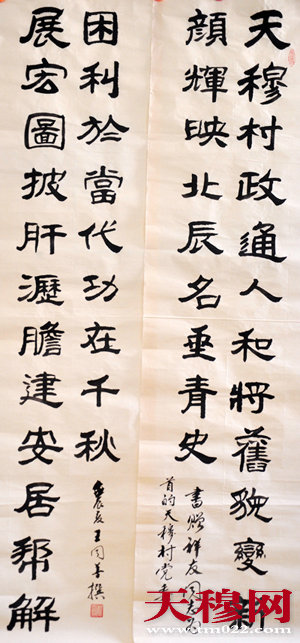 天穆村政通人和將舊貌變新
顏輝映北辰名垂青史
書贈祥友同志為
首的天穆村党委
展宏圖披肝瀝膽建安居幇解
困利於當代功在千秋
王同善撰
天穆网
www.tm022.com